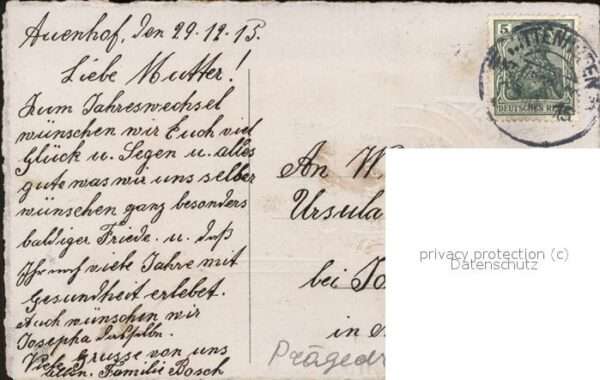 Auenhof, den 29.12.15.
Liebe Mutter!
Zum Jahreswechsel
wünschen wir Euch viel
Glück u. Segen u. alles
gute was wir uns selber
wünschen ganz besonders
baldiger Friede. u. daß
Ihr noch viele Jahre mit
Gesundheit erlebet.
Auch wünschen wir
Josepha
Viele Grüsse von uns
allen. Familie Bosch
5
DEUTSCHES REICH
15
An W
Ursula
bei Jo
in
Prägedr
privacy protection (c)
Datenschutz